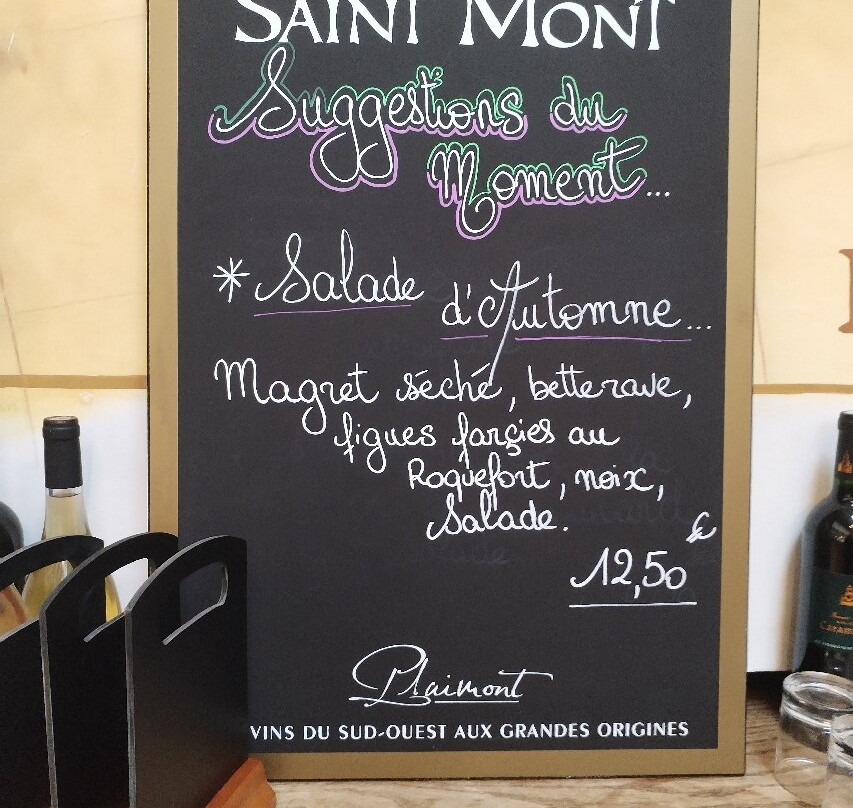 SAINT MONT
Suggestions du
Moment...
* Salade d'Automne...
Magret séché, betterave,
figues farçies au
Roquefort, noix,
Salade.
12,50 €
Plaimont
VINS DU SUD-OUEST AUX GRANDES ORIGINES